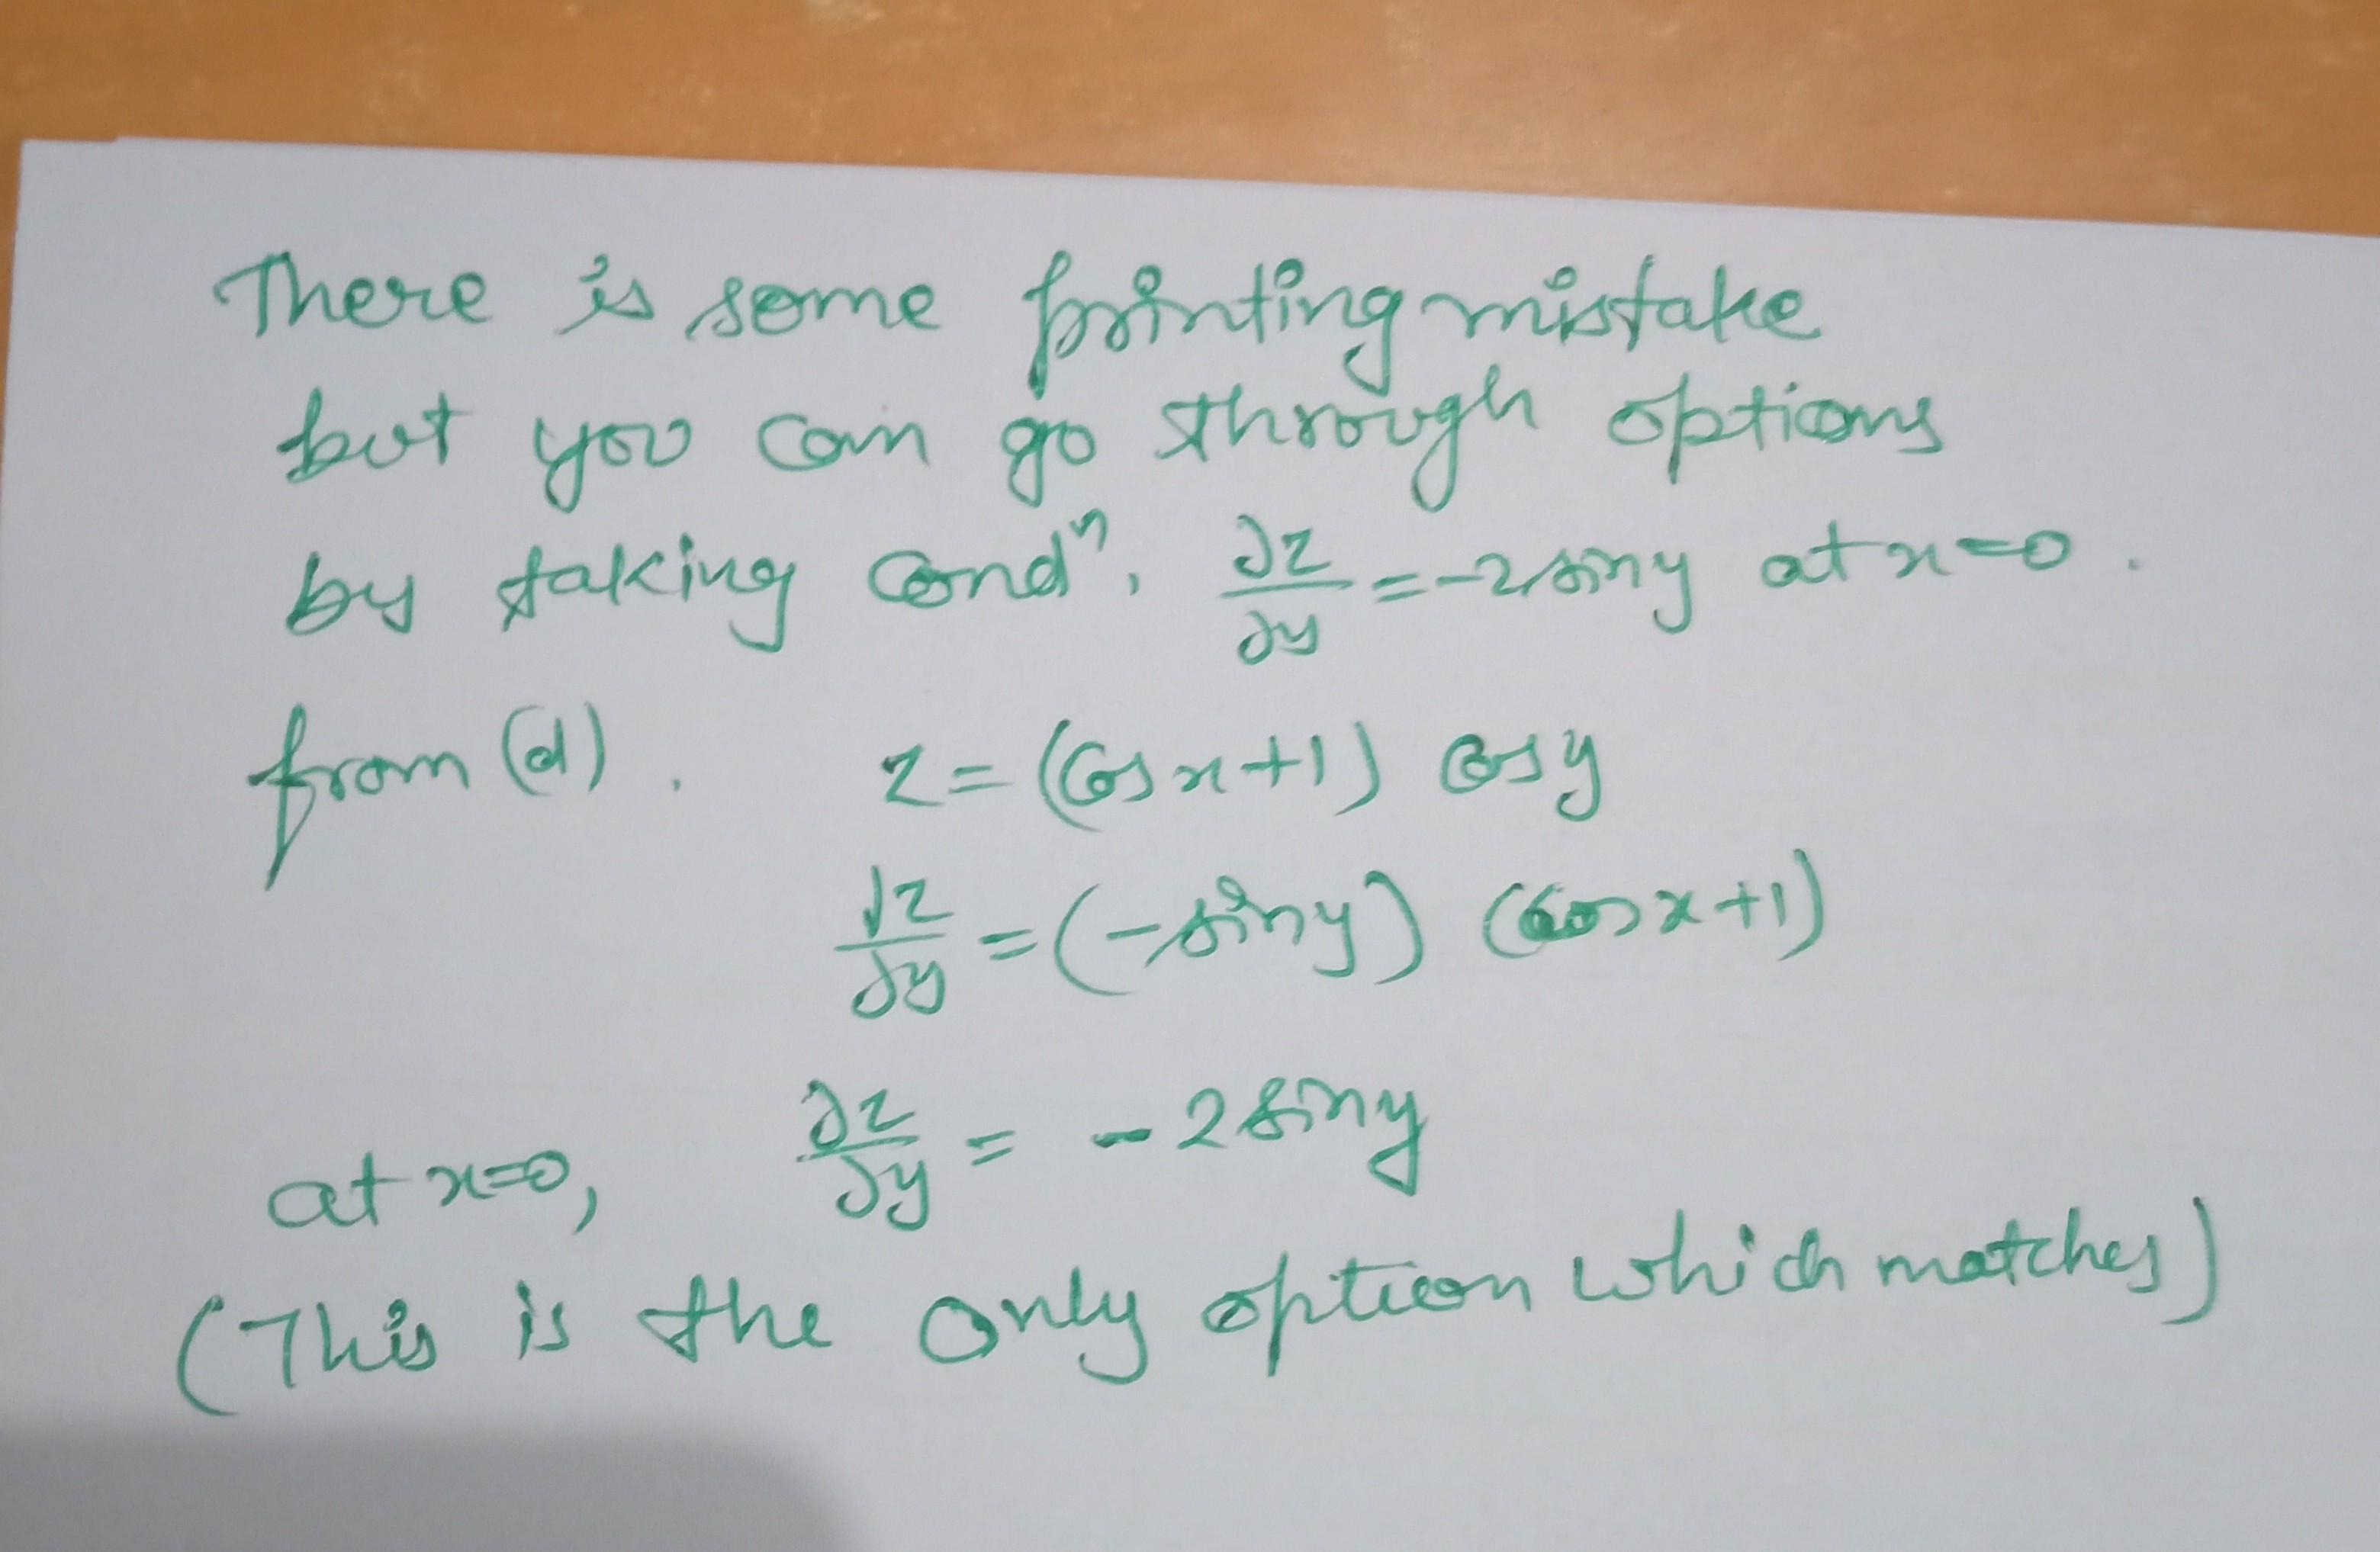 There is some printing mistake
but you can go through options
by taking condⁿ, ∂z/∂y = -2siny at x=0.
from (d). z = (Cosx+1) Cosy
∂z/∂y = (-siny) (Cosx+1)
at x=0, ∂z/∂y = -2siny
(This is the only option which matches)